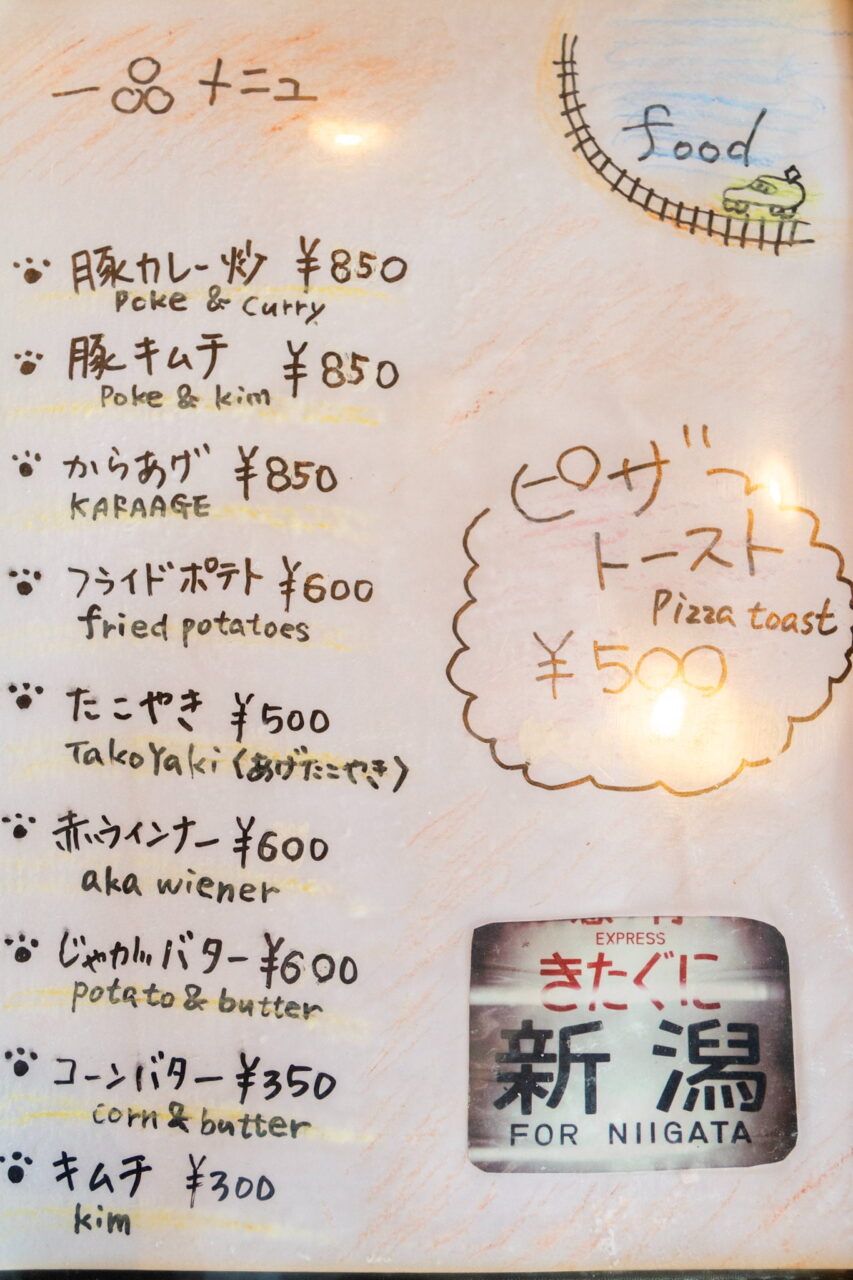 一品メニュ
food
豚カレー炒 ¥850
Poke & Curry
豚キムチ ¥850
Poke & kim
からあげ ¥850
KARAAGE
フライドポテト ¥600
fried potatoes
たこやき ¥500
TakoYaki (あげたこやき)
赤ウインナー ¥600
aka wiener
じゃがバター ¥600
potato & butter
コーンバター ¥350
corn & butter
キムチ ¥300
kim
ピザー
トースト
Pizza toast
¥500
EXPRESS
きたぐに
新潟
FOR NIIGATA